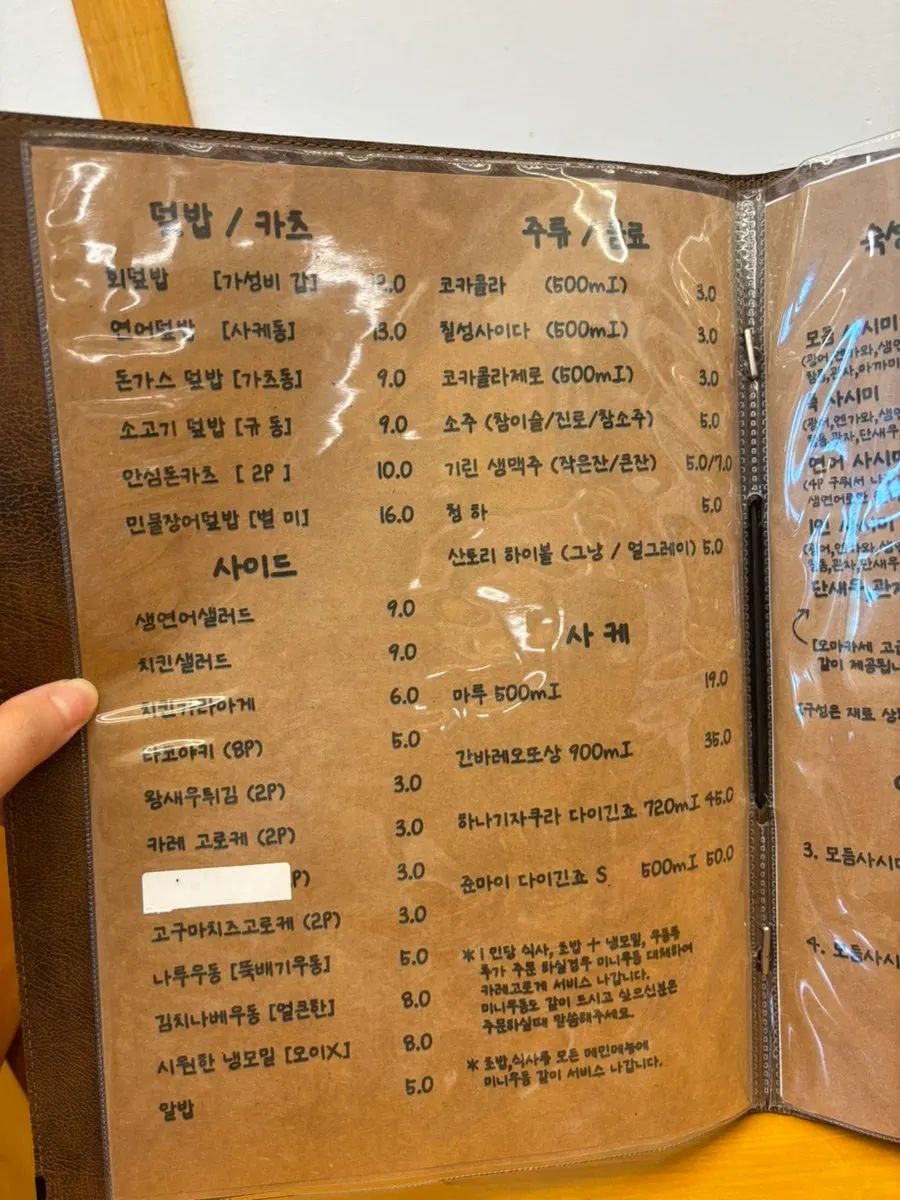 덮밥 / 카츠
회덮밥 [가성비 갑] 12.0
연어덮밥 [사케동] 13.0
돈가스 덮밥 [가츠동] 9.0
소고기 덮밥 [규동] 9.0
안심돈카츠 [ 2P ] 10.0
민물장어덮밥 [별미] 16.0
사이드
생연어샐러드 9.0
치킨샐러드 9.0
치킨가라아게 6.0
타코야키 (8P) 5.0
왕새우튀김 (2P) 3.0
카레 고로케 (2P) 3.0
P) 3.0
고구마치즈고로케 (2P) 3.0
나루우동 [뚝배기우동] 5.0
김치나베우동 [얼큰한] 8.0
시원한 냉모밀 [오이X] 8.0
알밥 5.0
주류 / 음료
코카콜라 (500ml) 3.0
칠성사이다 (500ml) 3.0
코카콜라제로 (500ml) 3.0
소주 (참이슬/진로/참소주) 5.0
기린 생맥주 (작은잔/큰잔) 5.0/7.0
청하 5.0
산토리 하이볼 (그냥 / 얼그레이) 5.0
사케
마루 500ml 19.0
간바레오또상 900ml 35.0
하나기자쿠라 다이긴죠 720ml 45.0
준마이 다이긴죠 S 500ml 50.0
* 1인당 식사, 초밥 + 냉모밀, 우동류
추가 주문 하실경우 미니우동 대체하여
카레고로케 서비스 나갑니다.
미니우동도 같이 드시고 싶으신분은
주문하실때 말씀해주세요.
* 초밥,식사류 모든 메인메뉴에
미니우동 같이 서비스 나갑니다.
숙성
모듬 사시미
(광어,엔가와,생연
참돔,관자,아까미
사시미
(광어,엔가와,생연
참돔,관자,단새우
연어 사시미
(4P 구워서 나
생연어로만
1인 사시미
(광어,엔가와,생연
참돔,관자,단새우
단새우 관자
[오마카세 고급
같이 제공됩니
[구성은 재료 상
3. 모듬사시미
4. 모듬사시